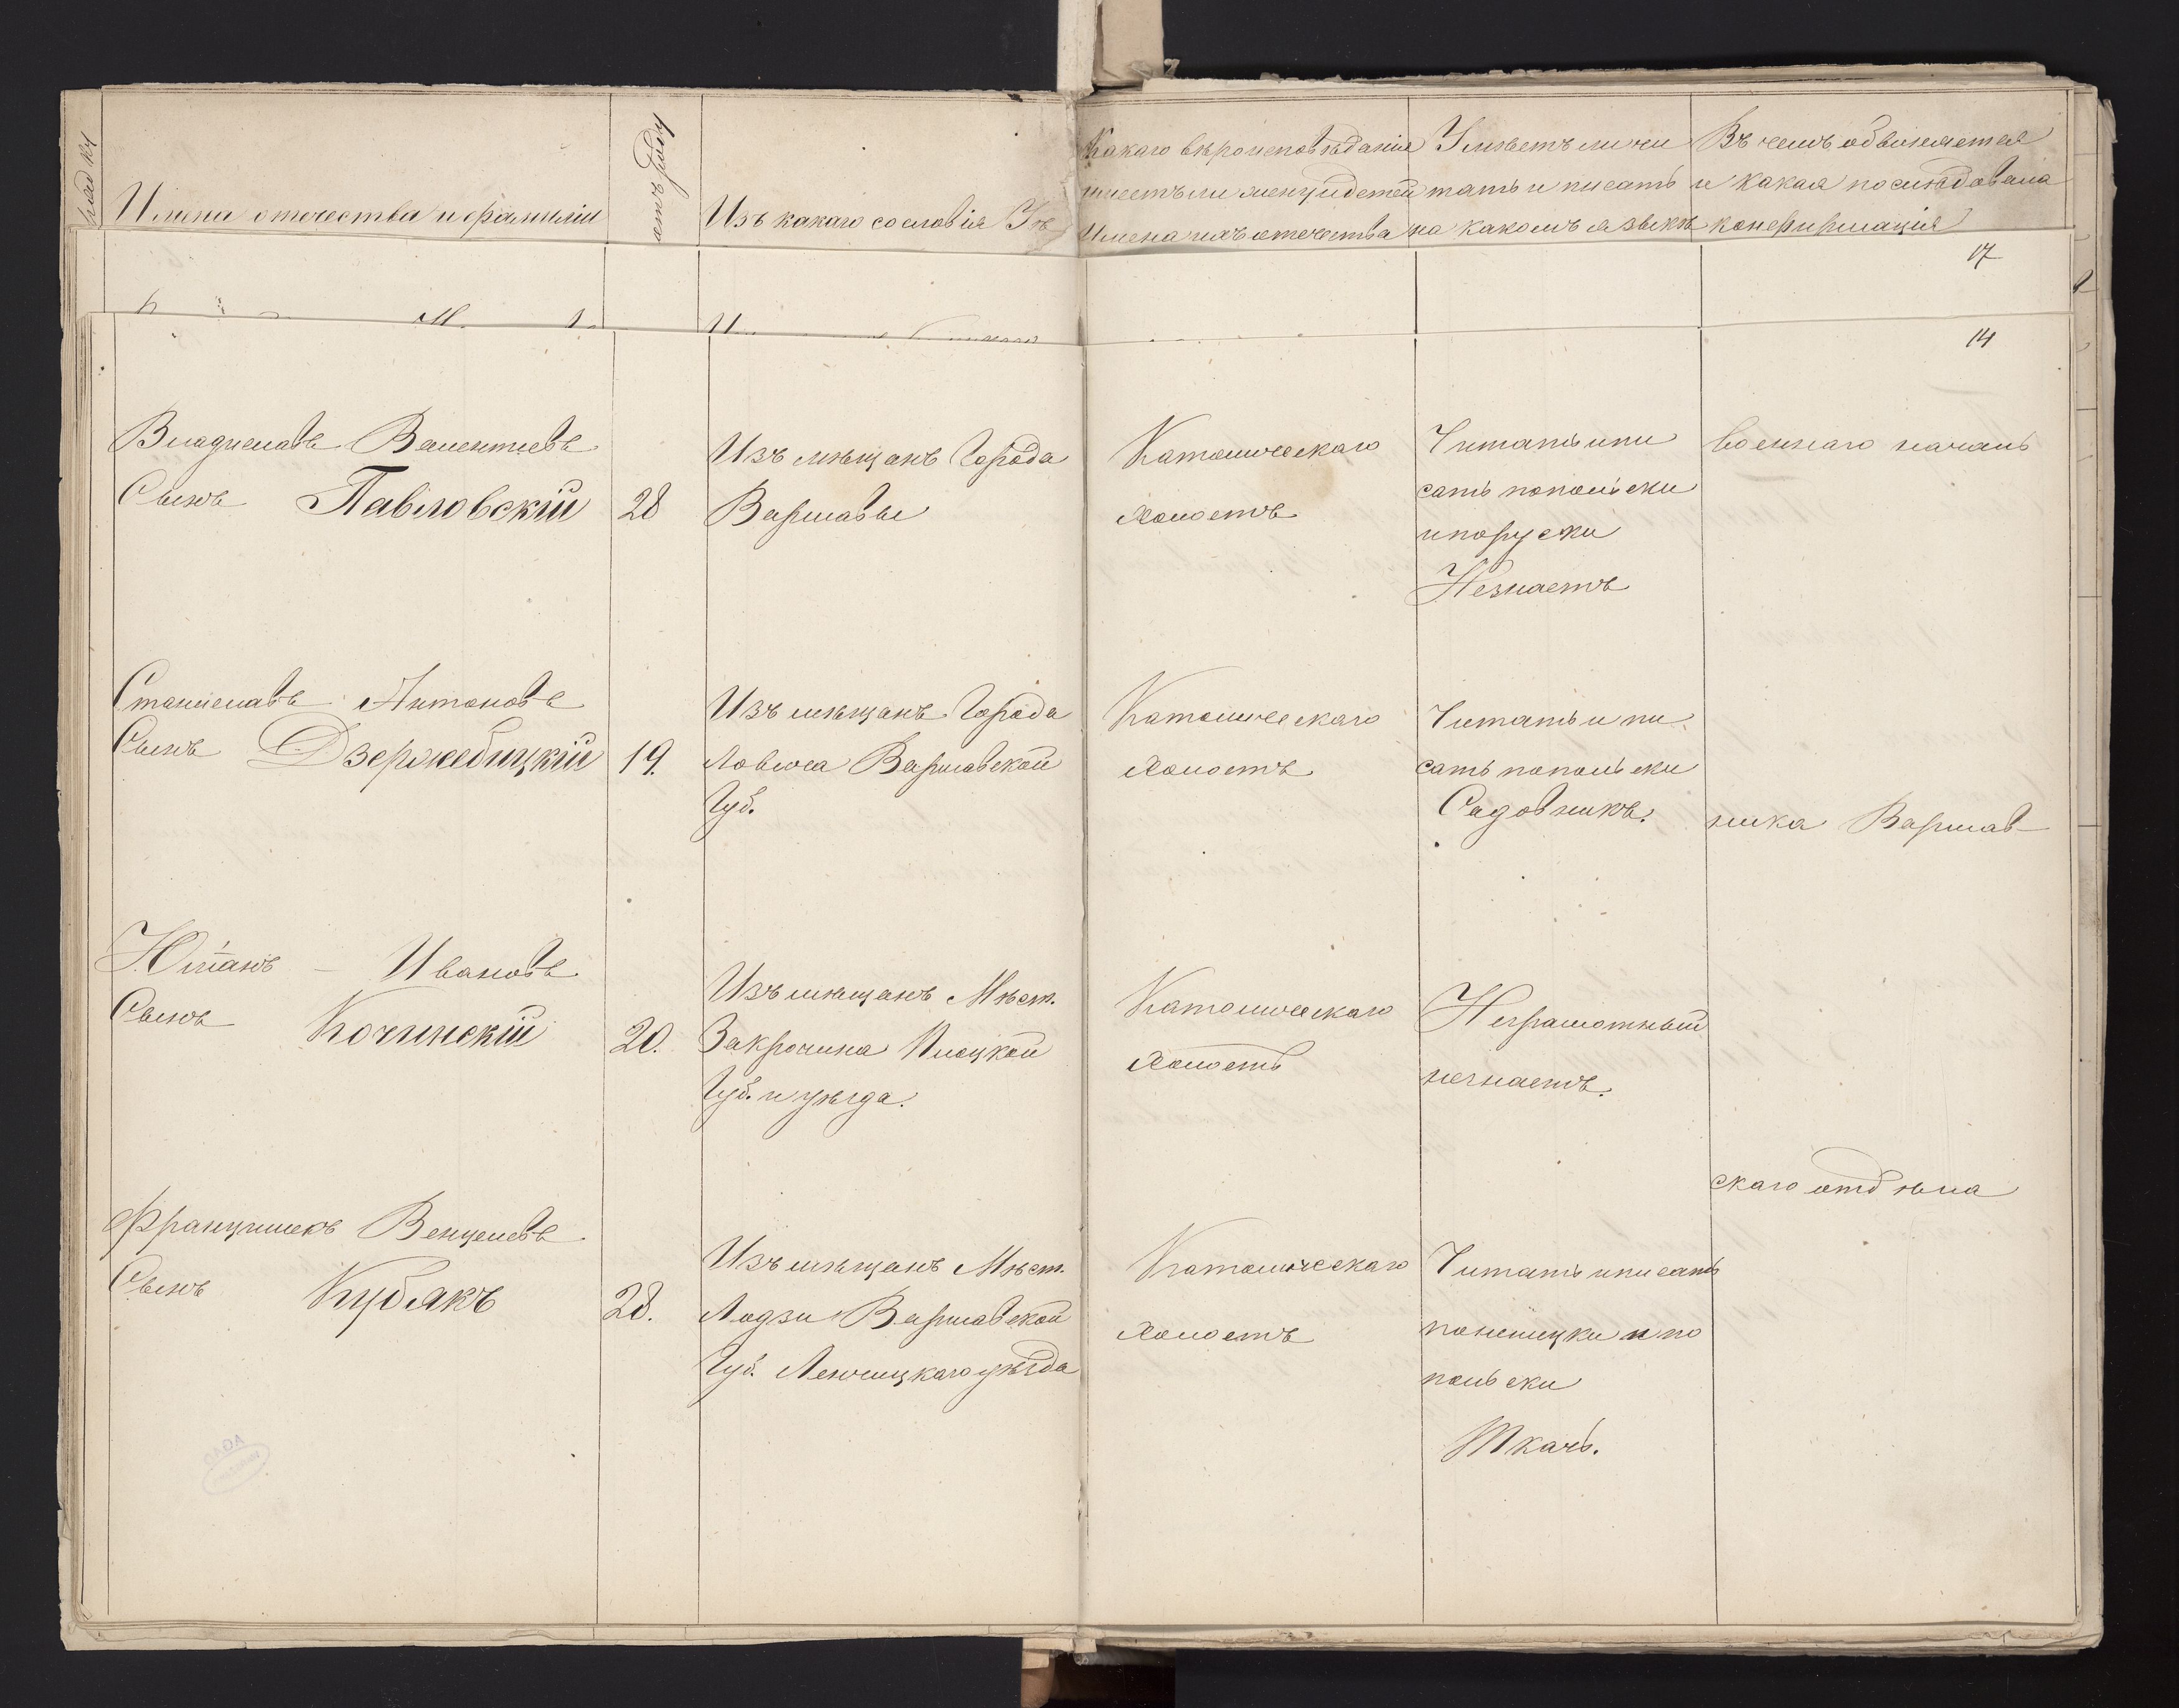 Имена отечества и фамиліи
лѣтъ роду
Изъ какаго сословія
Какаго вѣроисповѣданія
имеетъ ли жену и детей
Имена ихъ отечества
Умѣетъ ли чи
тать и писать
на какомъ языкѣ
Въ чемъ обвиняется
и какая последовала
конфирмація
17
14
Владиславъ Валентіевъ
Сынъ Павловскій
28
Изъ мѣщанъ Города
Варшавы
Католическаго
холостъ
Читать и пи
сать попольски
и поруски
Незнаетъ
военнаго началь
Станиславъ Антоновъ
Сынъ Дзержебицкій
19.
Изъ мѣщанъ Города
Ловича Варшавской
Губ.
Католическаго
холостъ
Читать и пи
сать попольски
Садовникъ.
ника Варшав-
Юліанъ - Ивановъ
Сынъ Кочинскій
20.
Изъ мѣщанъ Мѣст.
Закрочина Плоцкой
Губ. и уѣзда.
Католическаго
холостъ
Неграмотный
незнаетъ.
скаго отдѣла
Францишекъ Венцелевъ
Сынъ Кубякъ
28.
Изъ мѣщанъ Мѣст.
Лодзи Варшавской
Губ. Ленчицкаго уѣзда
Католическаго
холостъ
Читать и писать
понѣмецки и по
польски
Ткачъ.